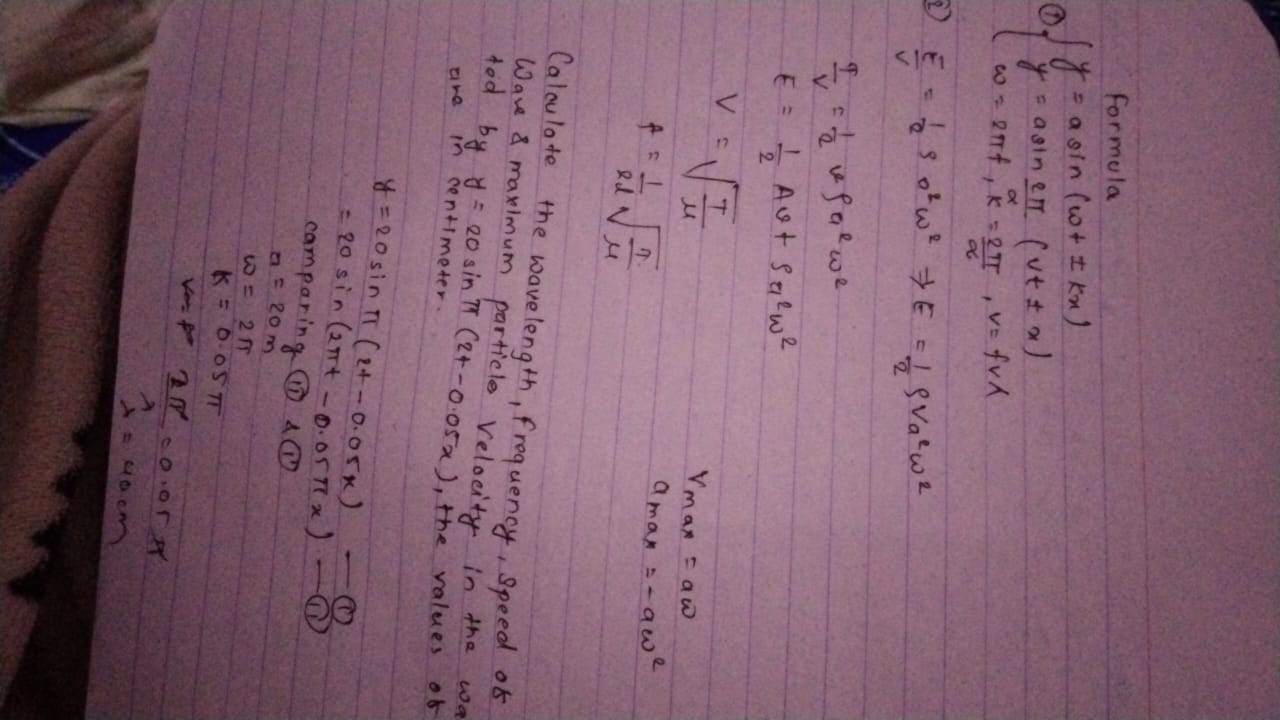 Formula
① { y = a sin (ωt ± kx)
y = a sin 2π/λ (vt ± x)
ω = 2πf, k = 2π/λ, v = fxλ
② E/V = 1/2 ρ a²ω² ⇒ E = 1/2 ρVa²ω²
= 1/2 vρa²ω²
E = 1/2 Avt ρa²ω²
V = √T/μ
Vmax = aω
f = 1/2l √T/μ
amax = -aω²
Calculate the wavelength, frequency, speed of
Wave & maximum particle velocity in the wa
ted by y = 20 sin π (2t - 0.05x), the values of
are in centimeter.
y = 20 sin π (2t - 0.05x) — ①
= 20 sin (2πt - 0.05πx) — ⑪
comparing ⑪ & ①
a = 20m
ω = 2π
K = 0.05π
2π/λ = 0.05π
λ = 40cm